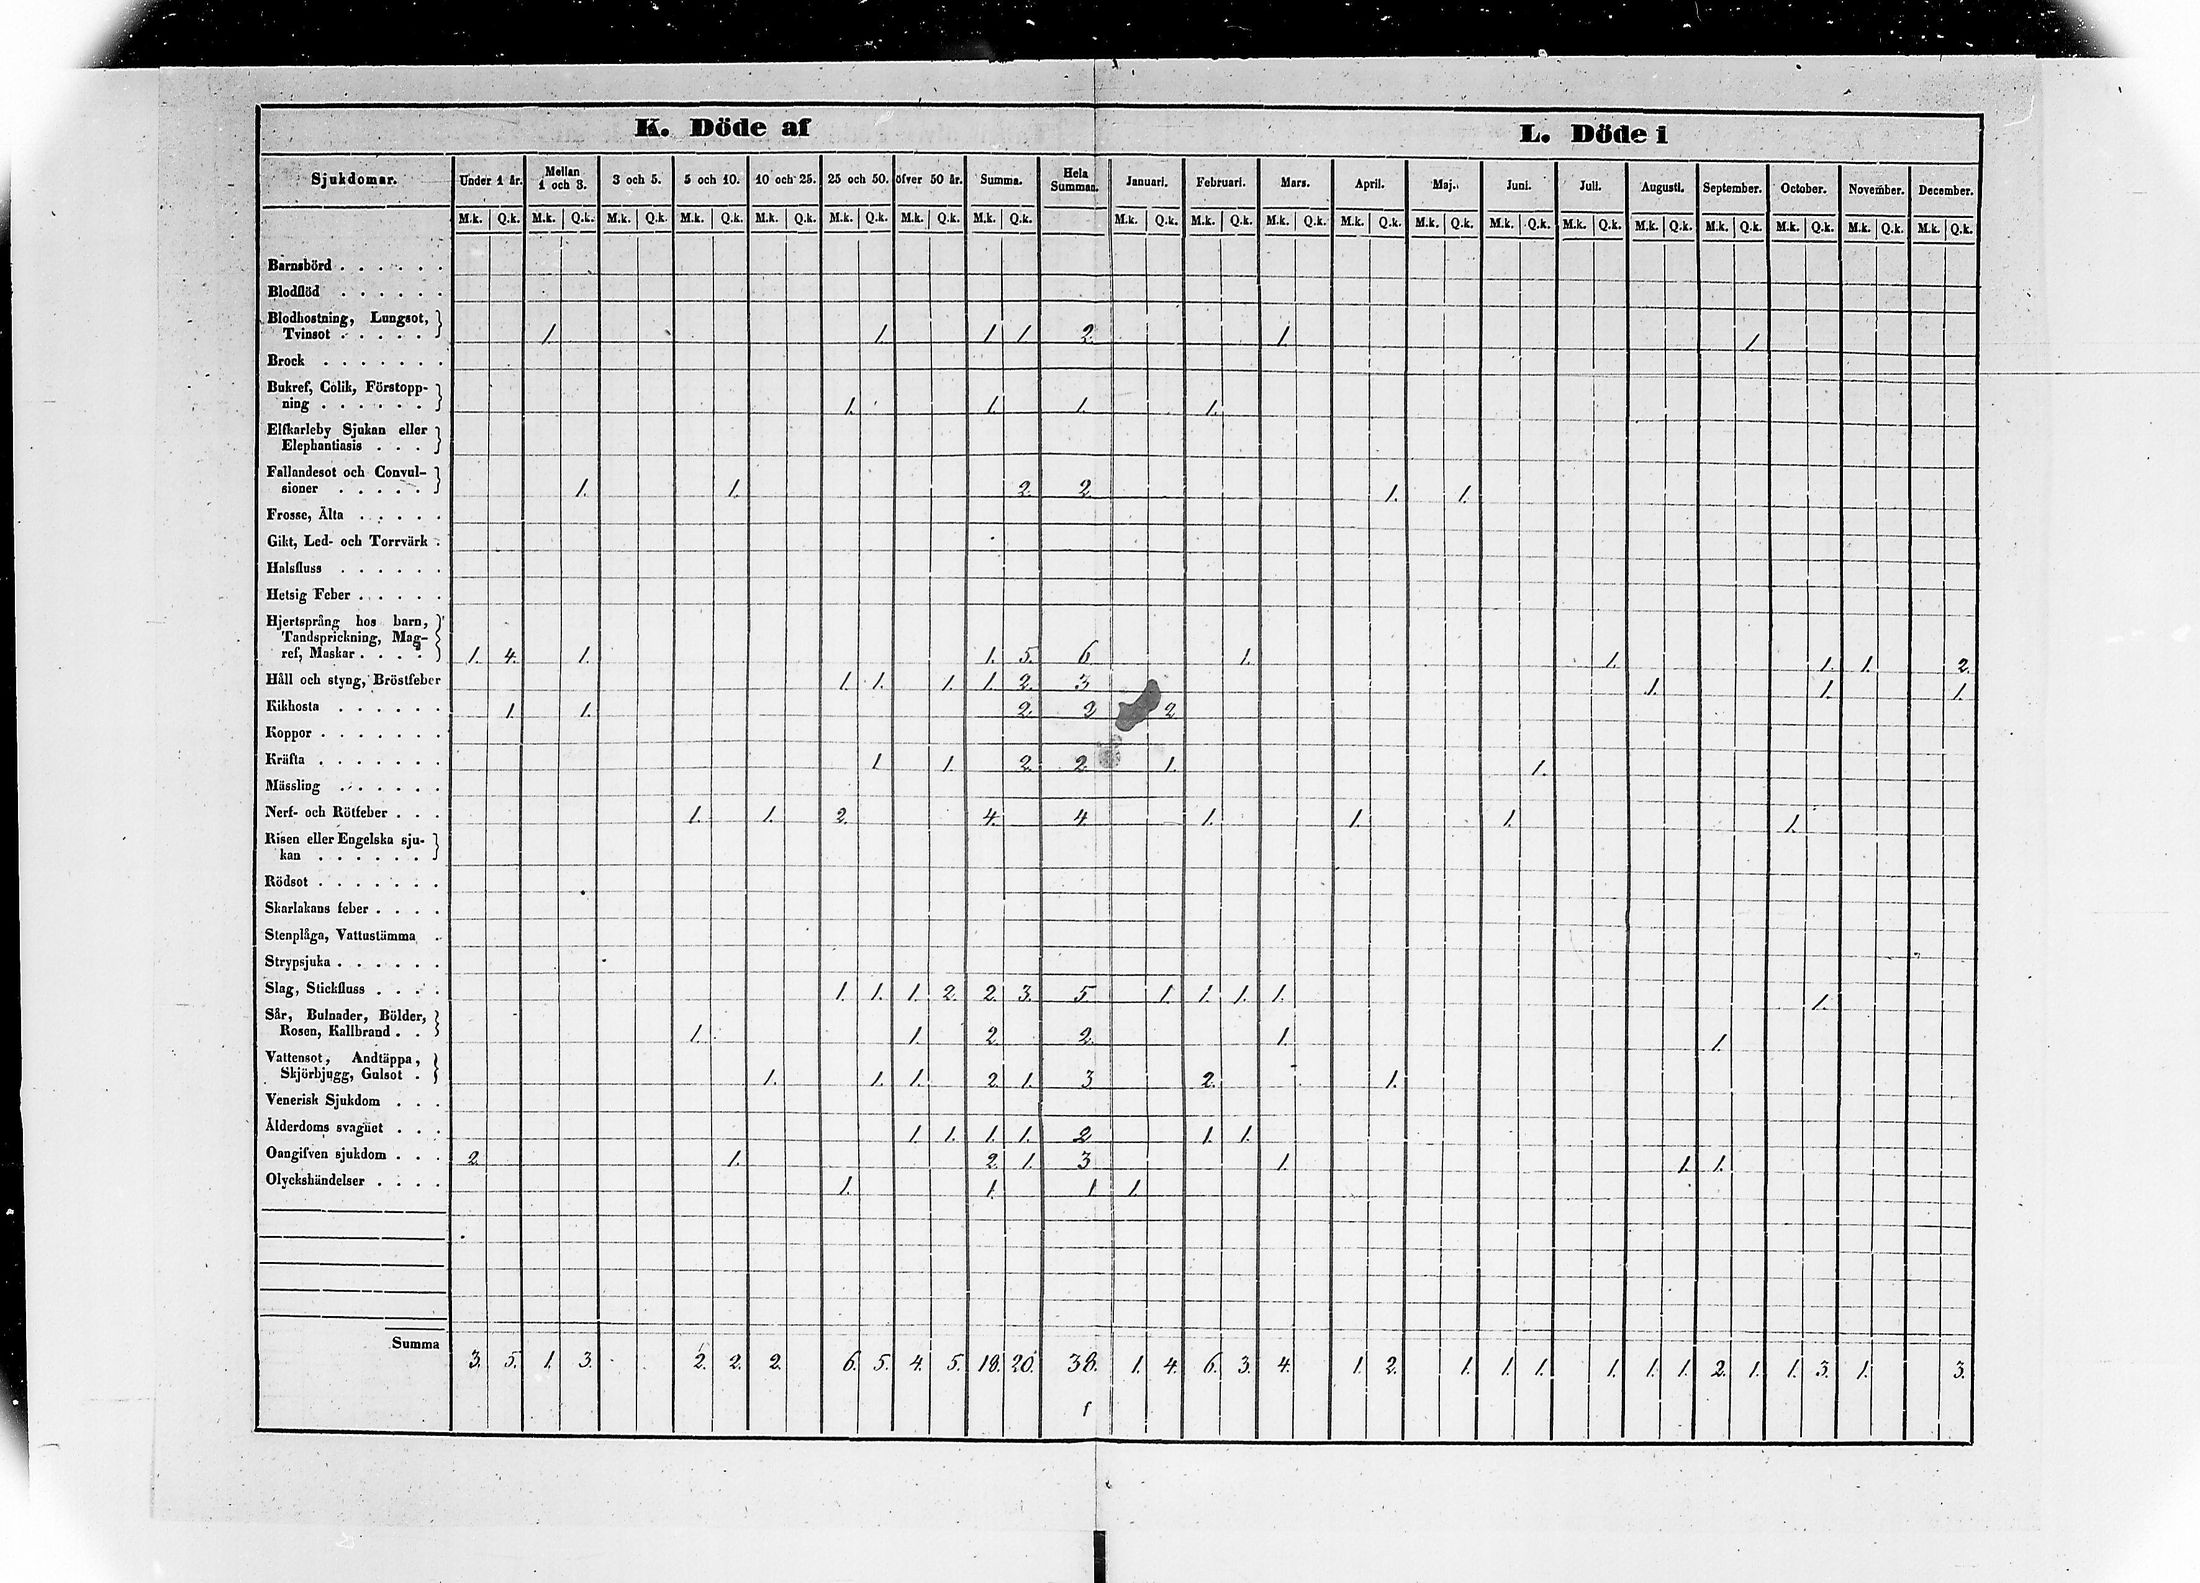 K. Döde af L. Döde i
Sjukdomar. Under 1 år. Mellan 1 och 3. 3 och 5. 5 och 10. 10 och 25. 25 och 50. öfver 50 år. Summa. Hela Summan. Januari. Februari. Mars. April. Maj. Juni. Juli. Augusti. September. October. November. December.
M.k. Q.k. M.k. Q.k. M.k. Q.k. M.k. Q.k. M.k. Q.k. M.k. Q.k. M.k. Q.k. M.k. Q.k. M.k. Q.k. M.k. Q.k. M.k. Q.k. M.k. Q.k. M.k. Q.k. M.k. Q.k. M.k. Q.k. M.k. Q.k. M.k. Q.k. M.k. Q.k. M.k. Q.k. M.k. Q.k.
Barnsbörd . . . . . .
Blodflöd . . . . . .
Blodhostning, Lungsot,
Tvinsot . . . . . 1. 1. 1 1 2. 1. 1.
Brock . . . . . . .
Bukref, Colik, Förstopp-
ning . . . . . . 1. 1. 1. 1.
Elfkarleby Sjukan eller
Elephantiasis . . .
Fallandesot och Convul-
sioner . . . . . 1. 1. 2. 2. 1. 1.
Frosse, Älta . . . . .
Gikt, Led- och Torrvärk .
Halsfluss . . . . . .
Hetsig Feber . . . . .
Hjertsprång hos barn,
Tandsprickning, Mag-
ref, Maskar . . . . 1. 4. 1. 1. 5. 6. 1. 1. 1. 1. 2.
Håll och styng, Bröstfeber 1. 1. 1. 1. 2. 3. 1. 1. 1.
Kikhosta . . . . . . 1. 1. 2. 2 2
Koppor . . . . . . .
Kräfta . . . . . . . 1 1. 2. 2. 1. 1.
Mässling . . . . . .
Nerf- och Rötfeber . . . 1. 1. 2. 4. 4. 1. 1. 1. 1.
Risen eller Engelska sju-
kan . . . . . .
Rödsot . . . . . . .
Skarlakans feber . . . .
Stenplåga, Vattustämma .
Strypsjuka . . . . . .
Slag, Stickfluss . . . . 1. 1. 1. 2. 2. 3. 5. 1. 1. 1. 1. 1.
Sår, Bulnader, Bölder,
Rosen, Kallbrand . . 1. 1. 2. 2. 1. 1.
Vattensot, Andtäppa,
Skjörbjugg, Gulsot . 1. 1. 1. 2. 1. 3 2. 1.
Venerisk Sjukdom . . .
Ålderdoms svaghet . . . 1 1. 1. 1. 2 1. 1.
Oangifven sjukdom . . . 2. 1. 2. 1. 3 1. 1. 1.
Olyckshändelser . . . . 1. 1. 1 1.
Summa 3. 5. 1. 3. 2. 2. 2. 6. 5. 4. 5. 18. 20. 38. 1. 4. 6. 3. 4. 1. 2. 1. 1. 1. 1. 1. 1. 2. 1. 1. 3. 1. 3.